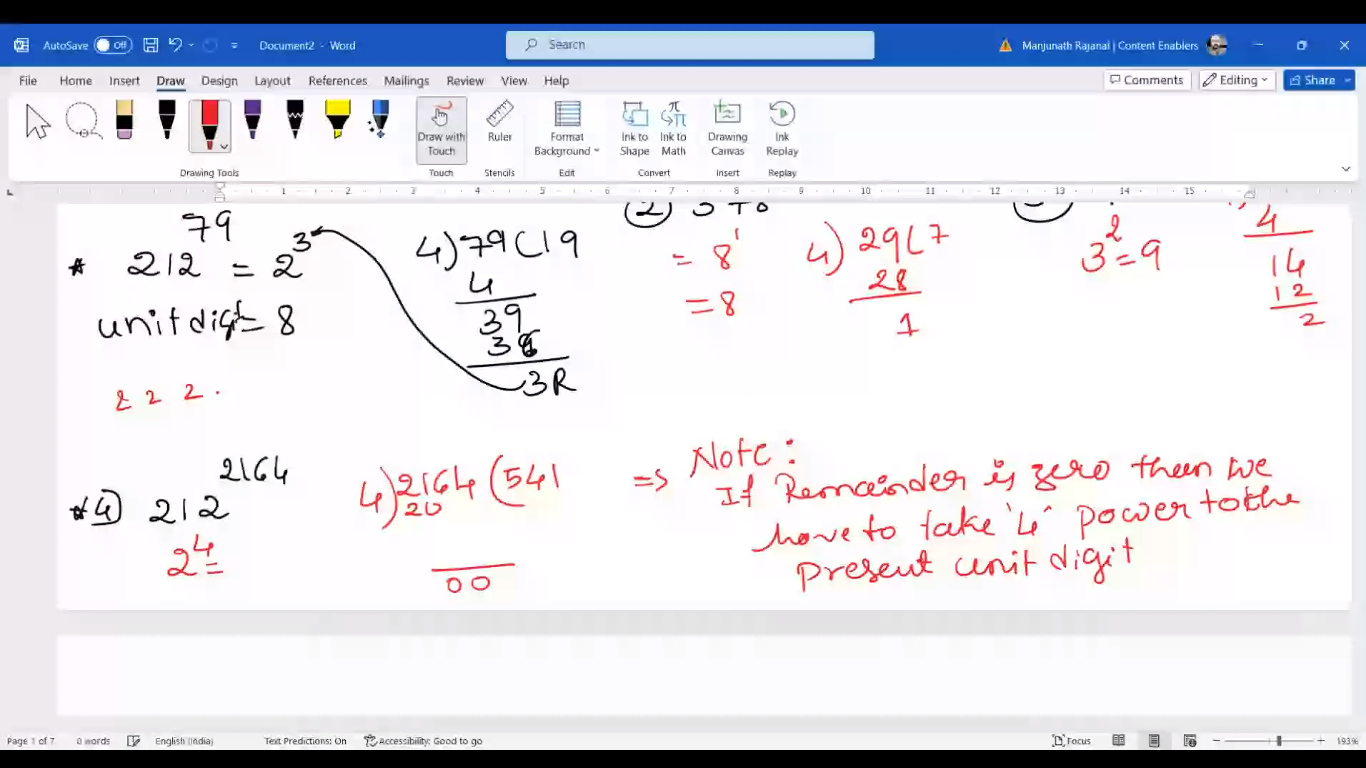 AutoSave Off Document2 - Word Search Manjunath Rajanal | Content Enablers
File Home Insert Draw Design Layout References Mailings Review View Help Comments Editing Share
Draw with Touch Ruler Format Background Ink to Shape Ink to Math Drawing Canvas Ink Replay
Drawing Tools Touch Stencils Edit Convert Insert Replay
1 2 3 4 5 6 7 8 9 10 11 12 13 14 15
* 212^79 = 2^3
unit digit = 8
2 2 2 .
4) 79 ( 19
4
39
36
3R
2
= 8^1
= 8
4) 29 ( 7
28
1
3^2 = 9
4
14
12
2
* 4) 212^2164
2^4 =
4) 2164 ( 541
20
00
=> Note :
If Remainder is zero then we
have to take '4' power to the
present unit digit
Page 1 of 7 0 words English (India) Text Predictions: On Accessibility: Good to go Focus 193%